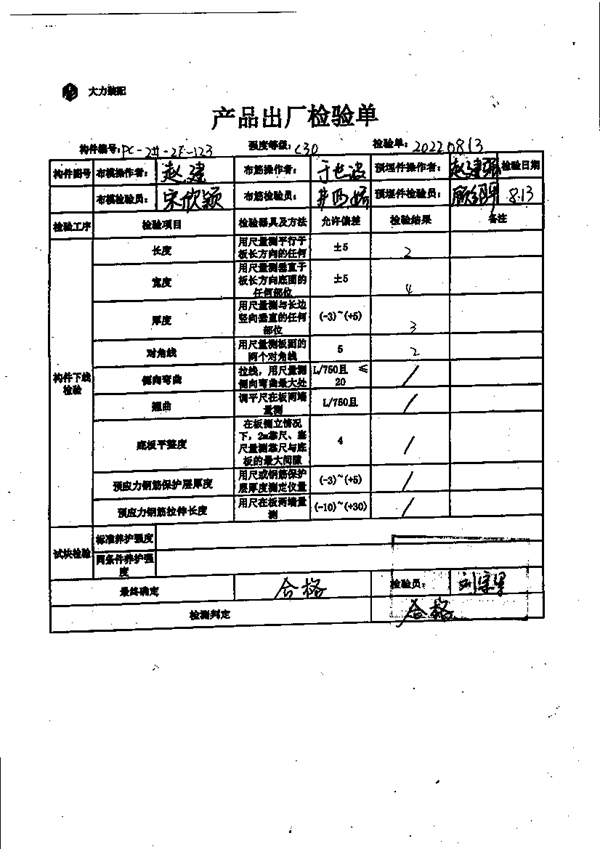 大力装配
产品出厂检验单
构件编号: PC-2#-2F-123 强度等级: C30 检验单: 20220813
构件图号 布模操作者: 赵建 布筋操作者: 预埋件操作者: 赵建强 检验日期
布模检验员: 宋欣颖 布筋检验员: 预埋件检验员: 8.13
检验工序 检验项目 检验器具及方法 允许偏差 检验结果 备注
构件下线检验
长度 用尺量测平行于板长方向的任何 ±5 2
宽度 用尺量测垂直于板长方向底面的任何部位 ±5 4
厚度 用尺量测与长边竖向垂直的任何部位 (-3)~(+5) 3
对角线 用尺量测板面的两个对角线 5 2
侧向弯曲 拉线,用尺量测侧向弯曲最大处 L/750且 ≤20 /
翘曲 调平尺在板两端量测 L/750且 /
底板平整度 在板侧立情况下,2m靠尺、塞尺量测靠尺与底板的最大间隙 4 /
预应力钢筋保护层厚度 用尺或钢筋保护层厚度测定仪量 (-3)~(+5) /
预应力钢筋拉伸长度 用尺在板两端量测 (-10)~(+30) /
试块检验 标准养护强度
同条件养护强度
最终确定 合格 检验员:
检测判定 合格